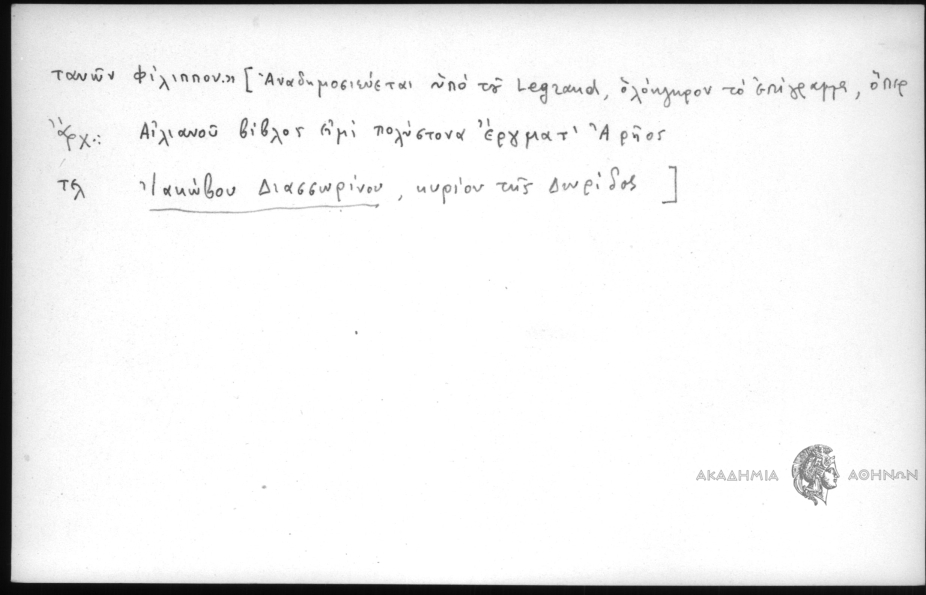 τανῶν Φίλιππον.» [Ἀναδημοσιεύεται ὑπό τοῦ Legrand, ὁλόκληρον τό ἐπίγραμμα, ὅπερ
ἄρχ.:
Αἰλιανοῦ βίβλος εἰμί πολύστονα ἔργματ' Ἄρηος
τελ Ἰακώβου Διασσωρίνου, κυρίου τῆς Δωρίδος]
ΑΚΑΔΗΜΙΑ ΑΘΗΝΩΝ